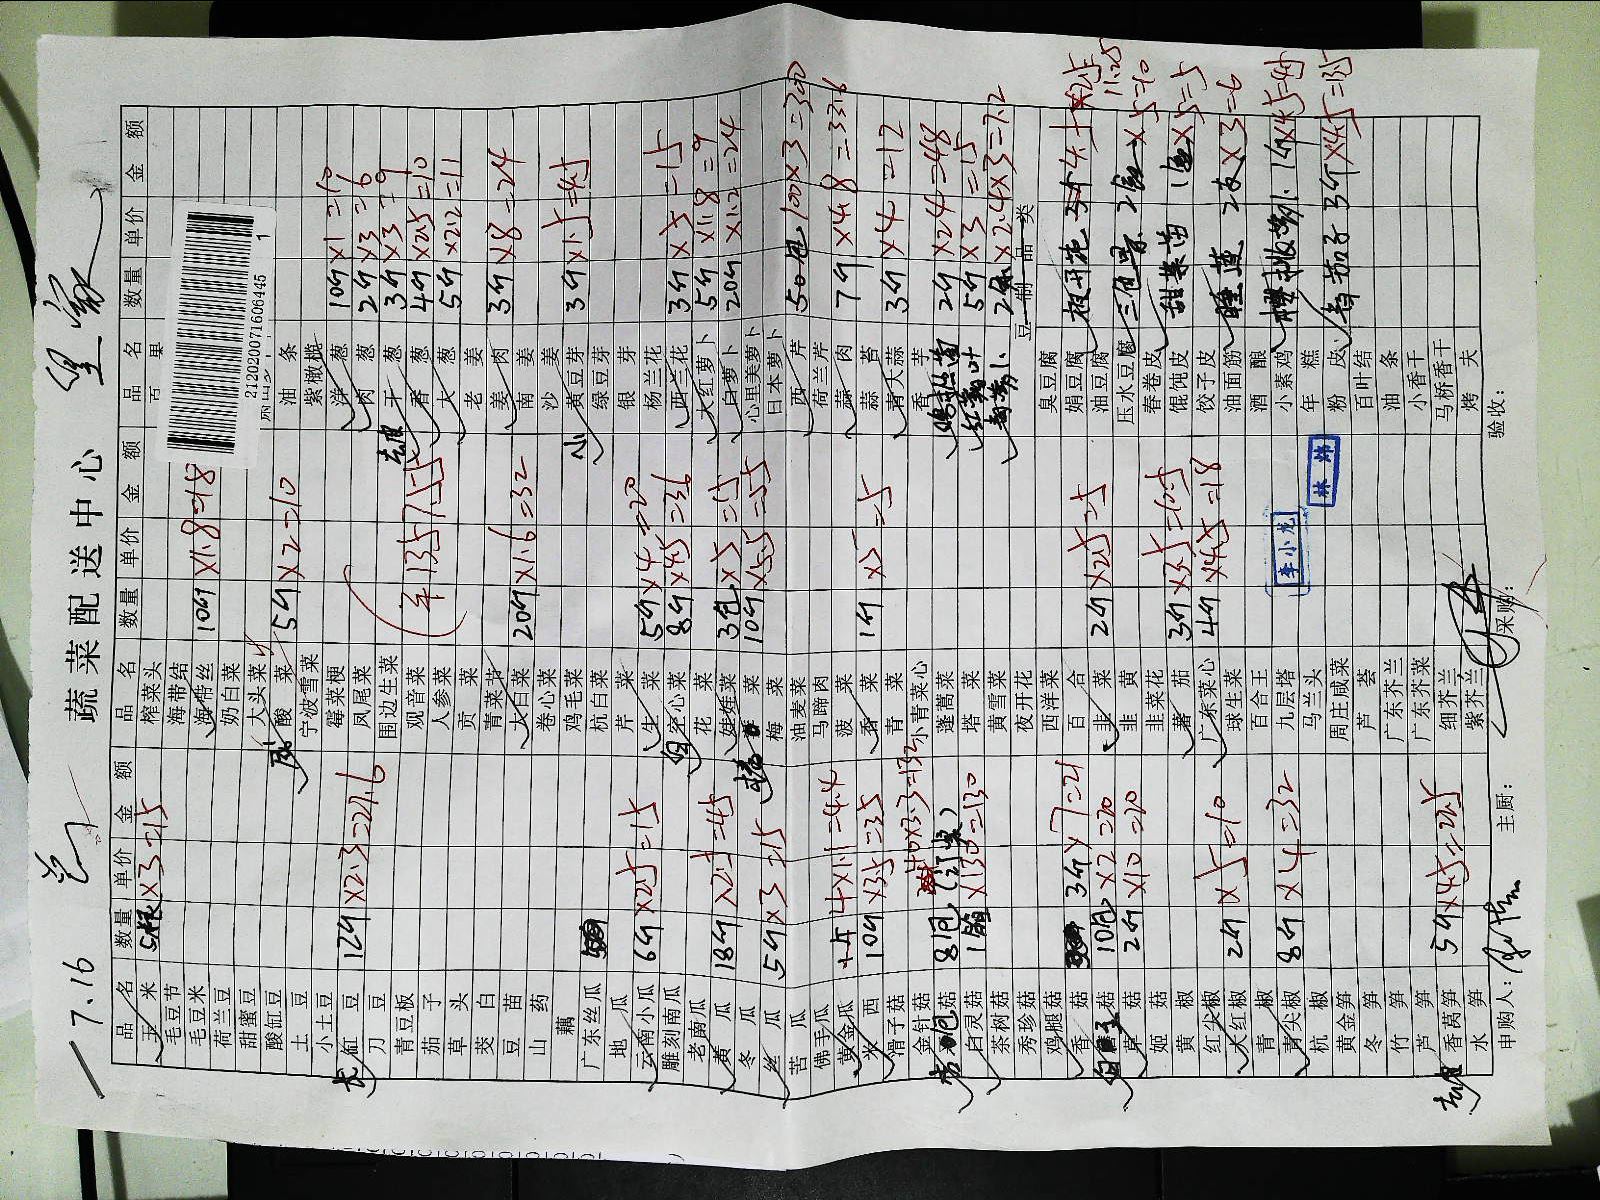 7.16
蔬菜配送中心
品名 数量 单价 金额 品名 数量 单价 金额 品名 数量 单价 金额
玉米 5根 ×3=15 榨菜头 百果
毛豆节 海带结
毛豆米 海带丝 10斤 ×1.8=18
荷兰豆 奶白菜
甜蜜豆 大头菜
酸缸豆 咸酸菜 5斤 ×2=10 油条
土豆 宁波雪菜 紫橄榄
小土豆 霉菜梗 洋葱 10斤 ×1=10
长缸豆 12斤 ×2.3=27.6 凤尾菜 肉葱 2斤 ×3=6
刀豆 围边生菜 干葱 3斤 ×3=9
青豆板 观音菜 香葱 4斤 ×2.5=10
茄子 人参菜 大葱 5斤 ×2.2=11
草头 贡菜 老姜
茭白 青菜苔 姜肉 3斤 ×8=24
豆苗 大白菜 20斤 ×1.6=32 南姜
山药 卷心菜 沙姜
藕 鸡毛菜 黄豆芽 3斤 ×1.5=4.5
广东丝瓜 杭白菜 绿豆芽
地瓜 芹菜 银芽
云南小瓜 6斤 ×2.5=15 生菜 5斤 ×4=20 杨兰花
雕刻南瓜 空心菜 8斤 ×4.5=36 西兰花 3斤 ×5=15
老南瓜 花菜 大红萝卜 5斤 ×1.8=9
黄瓜 18斤 ×2.5=45 娃娃菜 3包 ×5=15 白萝卜 20斤 ×1.2=24
冬瓜 菜 10斤 ×5.5=55 心里美萝卜
丝瓜 5斤 ×3=15 梅菜 日本萝卜
苦瓜 油麦菜 西芹 50 100×3=300
佛手瓜 马蹄肉 荷兰芹
黄金瓜 4×1.1=4.4 菠菜 蒜肉 7斤 ×4.8=33.6
米西 10斤 ×3.5=35 香菜 1斤 ×5=5 蒜苔
滑子菇 青菜 青大蒜 3斤 ×4=12
金针菇 40×3.3=132 小青菜心 香芋
8包 蓬蒿菜 2斤 ×24=48
白灵菇 1箱 ×130=130 塔菜 红薯叶 5斤 ×3=15
茶树菇 黄雪菜 2.4×3=7.2
秀珍菇 夜开花 豆制品类
鸡腿菇 西洋菜 臭豆腐
香菇 3斤 ×7=21 百合 娟豆腐
10包 ×2=20 韭菜 2斤 ×2.5=5 油豆腐 11.25
草菇 2斤 ×10=20 韭黄 压水豆腐 ×5=10
姬菇 韭菜花 春卷皮
黄椒 蕃茄 3斤 ×3.5=10.5 馄饨皮 甜菜苗 ×5=5
红尖椒 广东菜心 4斤 ×4.5=18 饺子皮
大红椒 2斤 ×5=10 球生菜 油面筋 ×3=6
青椒 百合王 酒酿
青尖椒 8斤 ×4=32 九层塔 小素鸡 ×45=45
杭椒 马兰头 年糕
黄金笋 周庄咸菜 粉皮 茄子 3斤 ×4.5=13.5
冬笋 芦荟 百叶结
竹笋 广东芥兰 油条
芦笋 广东芥菜 小香干
香莴笋 5斤 ×4.5=22.5 细芥兰 马桥香干
水笋 紫芥兰 烤夫
(羊1357.55)
212020071606445 1
李小龙
林炜
申购人: 主厨: 采购: 验收: